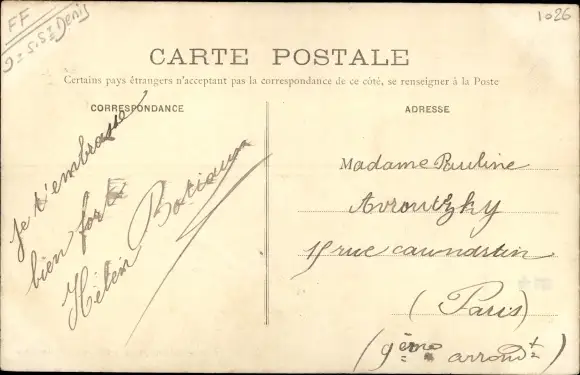 FF
9 = S. St Denis
1026
CARTE POSTALE
Certains pays étrangers n'acceptant pas la correspondance de ce côté, se renseigner à la Poste
CORRESPONDANCE
je t'embrasse
bien fort
Hélèn
ADRESSE
Madame Pauline
Avroutzky
rue
(Paris)
(9ème arrondt